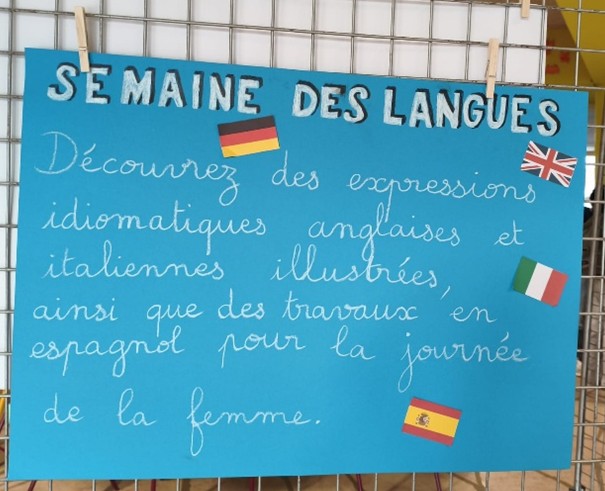 SEMAINE DES LANGUES
Découvrez des expressions
idiomatiques anglaises et
italiennes illustrées,
ainsi que des travaux en
espagnol pour la journée
de la femme.